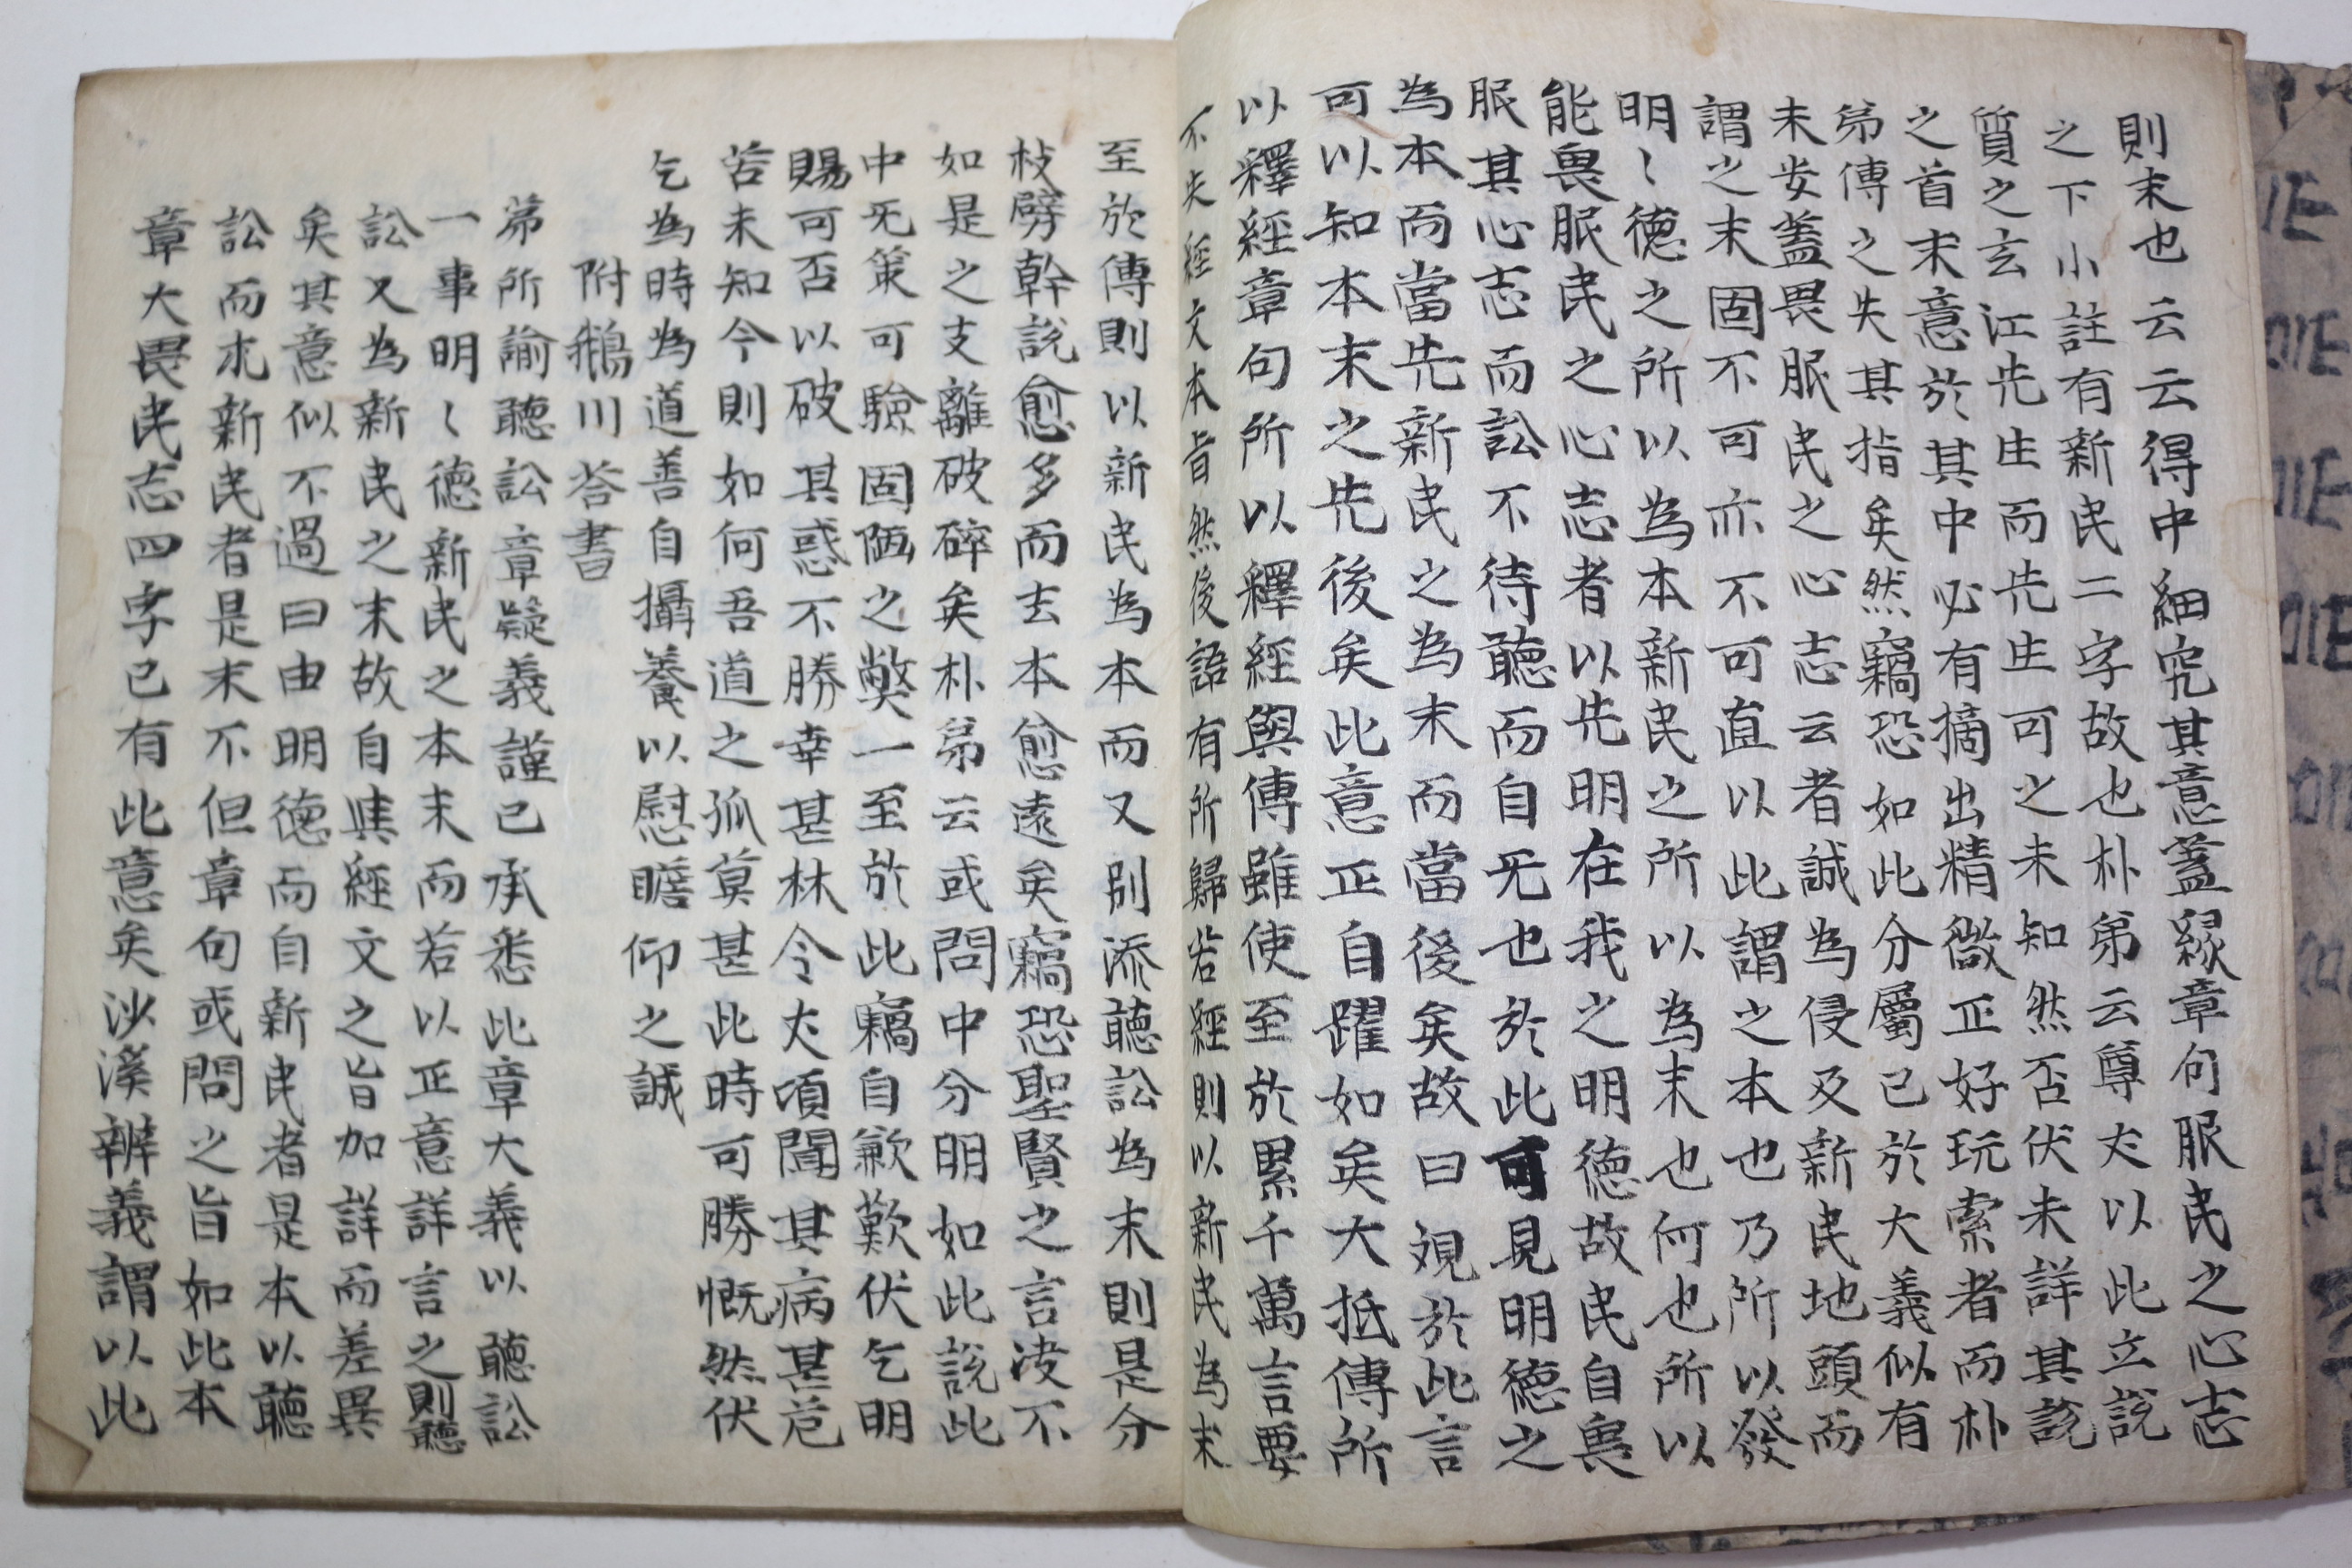 則末也云云得中細究其意蓋緣章句服民之心志
之下小註有新民二字故也朴弟云尊丈以此立說
質之玄江先生而先生可之未知然否伏未詳其說
之首末意於其中必有摘出精微正好玩索者而朴
弟傳之失其指矣然竊恐如此分屬已於大義似有
未安蓋畏服民之心志云者誠為侵及新民地頭而
謂之末固不可亦不可直以此謂之本也乃所以發
明〻德之所以為本新民之所以為末也何也所以
能畏服民之心志者以先明在我之明德故民自畏
服其心志而訟不待聽而自无也於此可見明德之
為本而當先新民之為末而當後矣故曰觀於此言
可以知本末之先後矣此意正自躍如矣大抵傳所
以釋經章句所以釋經與傳雖使至於累千萬言要
不失經文本旨然後語有所歸若經則以新民為末
至於傳則以新民為本而又別添聽訟為末則是分
枝劈幹說愈多而去本愈遠矣竊恐聖賢之言決不
如是之支離破碎矣朴弟云或問中分明如此說此
中无策可驗固陋之弊一至於此竊自歉歎伏乞明
賜可否以破其惑不勝幸甚林令丈頃聞其病甚危
苦未知今則如何吾道之孤莫甚此時可勝慨然伏
乞為時為道善自攝養以慰瞻仰之誠
附鵝川答書
第所諭聽訟章疑義謹已承悉此章大義以聽訟
一事明〻德新民之本末而若以正意詳言之則聽
訟又為新民之末故自與經文之旨加詳而差異
矣其意似不過曰由明德而自新民者是本以聽
訟而求新民者是末不但章句或問之旨如此本
章大畏民志四字已有此意矣沙溪辨義謂以此